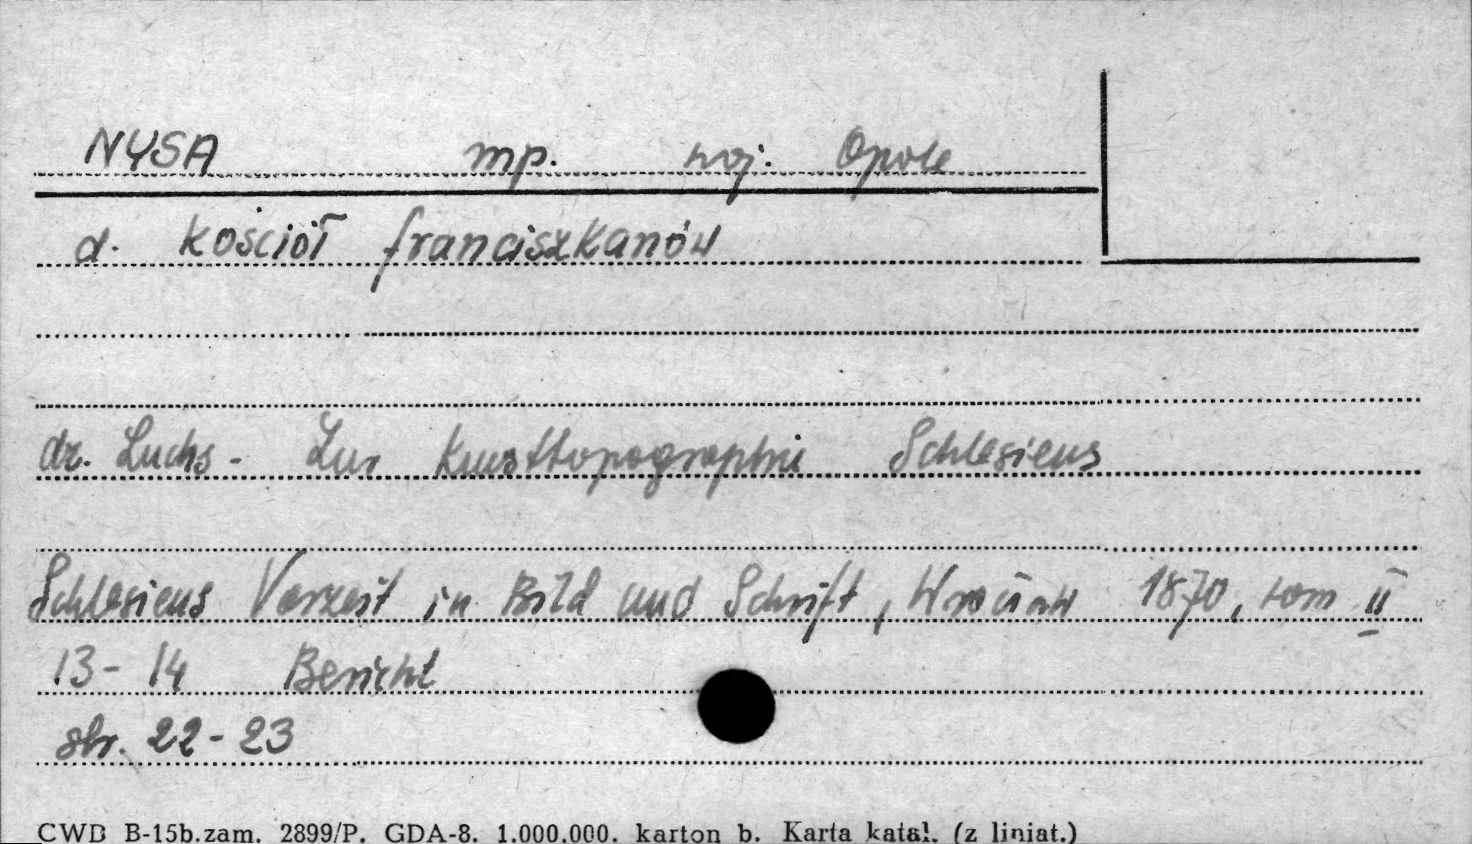 NYSA mp. woj. Opole
d. kościół franciszkanów
dr. Luchs - Zur Kunsttopographie Schlesiens
Schlesiens Vorzeit in Bild und Schrift, Wrocław 1870, tom II
13-14 Bericht
str. 22-23
CWD B-15b.zam. 2899/P. GDA-8. 1.000.000. karton b. Karta katal. (z liniat.)